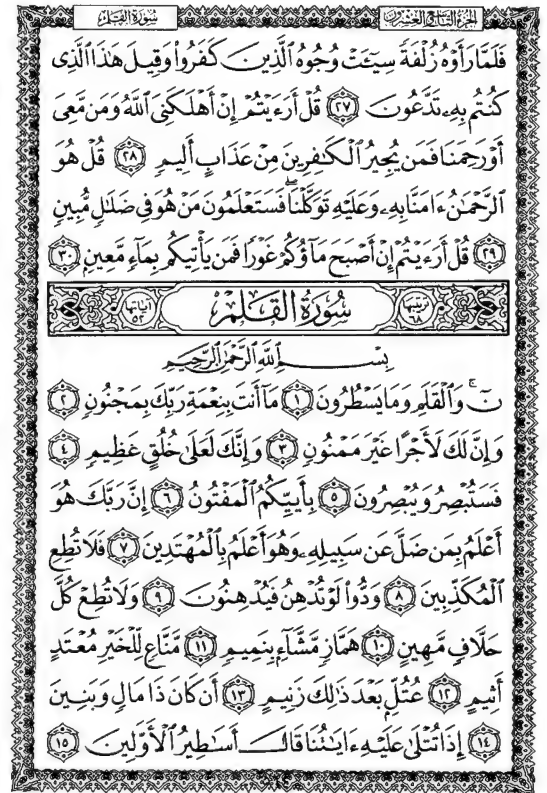 سُورَةُ القَلَمِ الجُزْءُ التَّاسِعُ العِشْرُونَ
فَلَمَّا رَأَوْهُ زُلْفَةً سِيٓـَٔتْ وُجُوهُ ٱلَّذِينَ كَفَرُوا۟ وَقِيلَ هَٰذَا ٱلَّذِى
كُنتُم بِهِۦ تَدَّعُونَ ٢٧ قُلْ أَرَءَيْتُمْ إِنْ أَهْلَكَنِىَ ٱللَّهُ وَمَن مَّعِىَ
أَوْ رَحِمَنَا فَمَن يُجِيرُ ٱلْكَٰفِرِينَ مِنْ عَذَابٍ أَلِيمٍ ٢٨ قُلْ هُوَ
ٱلرَّحْمَٰنُ ءَامَنَّا بِهِۦ وَعَلَيْهِ تَوَكَّلْنَا ۖ فَسَتَعْلَمُونَ مَنْ هُوَ فِى ضَلَٰلٍ مُّبِينٍ
٢٩ قُلْ أَرَءَيْتُمْ إِنْ أَصْبَحَ مَآؤُكُمْ غَوْرًا فَمَن يَأْتِيكُم بِمَآءٍ مَّعِينٍۭ ٣٠
ترتيبها ٦٨ سُورَةُ القَلَمِ آياتها ٥٢
بِسْمِ ٱللَّهِ ٱلرَّحْمَٰنِ ٱلرَّحِيمِ
نٓ ۚ وَٱلْقَلَمِ وَمَا يَسْطُرُونَ ١ مَآ أَنتَ بِنِعْمَةِ رَبِّكَ بِمَجْنُونٍ ٢
وَإِنَّ لَكَ لَأَجْرًا غَيْرَ مَمْنُونٍ ٣ وَإِنَّكَ لَعَلَىٰ خُلُقٍ عَظِيمٍ ٤
فَسَتُبْصِرُ وَيُبْصِرُونَ ٥ بِأَييِّكُمُ ٱلْمَفْتُونُ ٦ إِنَّ رَبَّكَ هُوَ
أَعْلَمُ بِمَن ضَلَّ عَن سَبِيلِهِۦ وَهُوَ أَعْلَمُ بِٱلْمُهْتَدِينَ ٧ فَلَا تُطِعِ
ٱلْمُكَذِّبِينَ ٨ وَدُّوا۟ لَوْ تُدْهِنُ فَيُدْهِنُونَ ٩ وَلَا تُطِعْ كُلَّ
حَلَّافٍ مَّهِينٍ ١٠ هَمَّازٍ مَّشَّآءٍۭ بِنَمِيمٍ ١١ مَّنَّاعٍ لِّلْخَيْرِ مُعْتَدٍ
أَثِيمٍ ١٢ عُتُلٍّۭ بَعْدَ ذَٰلِكَ زَنِيمٍ ١٣ أَن كَانَ ذَا مَالٍ وَبَنِينَ
١٤ إِذَا تُتْلَىٰ عَلَيْهِ ءَايَٰتُنَا قَالَ أَسَٰطِيرُ ٱلْأَوَّلِينَ ١٥